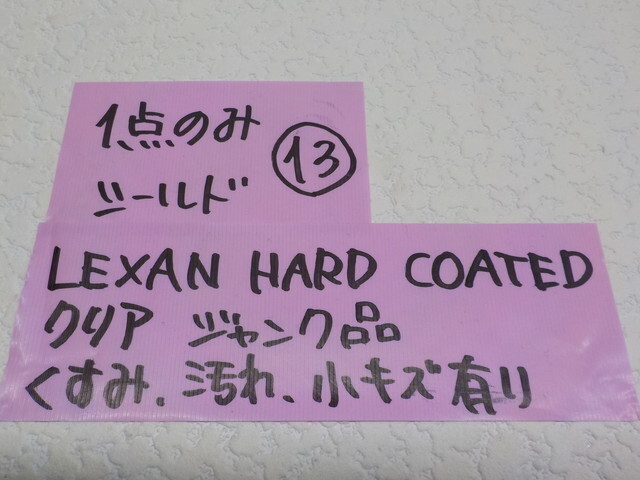 1点のみ
シールド
13
LEXAN HARD COATED
クリア ジャンク品
くすみ、汚れ、小キズ有り